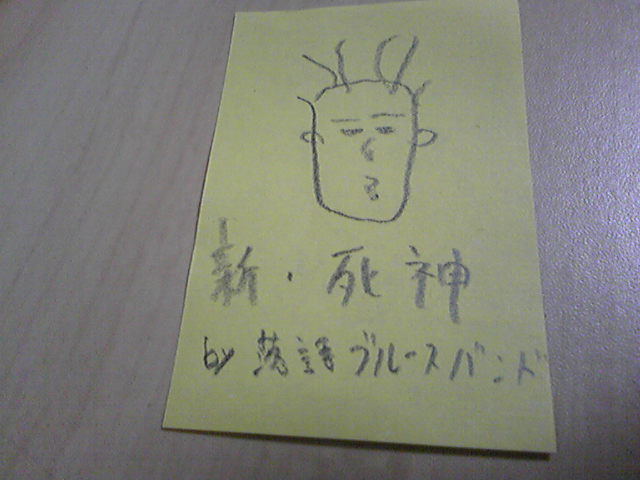 新・死神
by 落語ブルースバンド